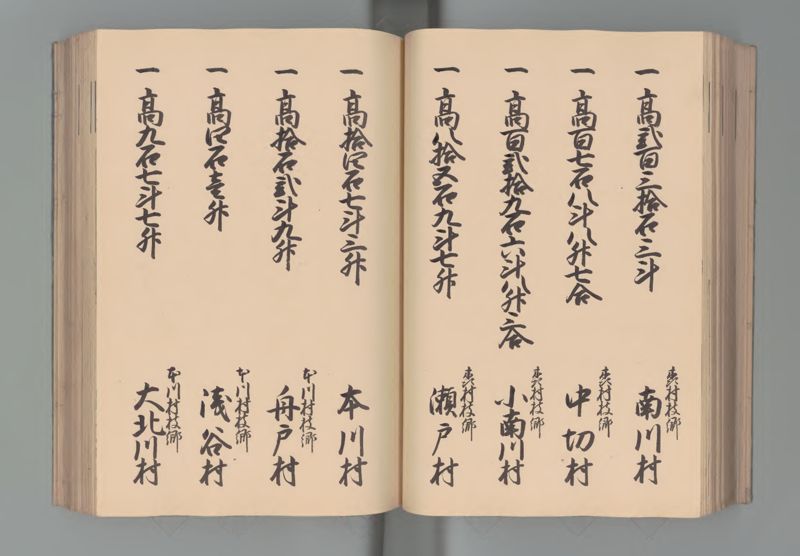 一 高弐百三拾石三斗
奥村枝郷
南川村
一 高百七石八斗八升七合
奥村枝郷
中切村
一 高百弐拾九石六斗八升三合
奥村枝郷
小南川村
一 高八拾五石九斗七升
奥村枝郷
瀬戸村
一 高拾四石七斗三升
本川村
一 高拾石弐斗九升
本川村枝郷
舟戸村
一 高四石壱升
本川村枝郷
浅谷村
一 高九石七斗七升
本川村枝郷
大北川村